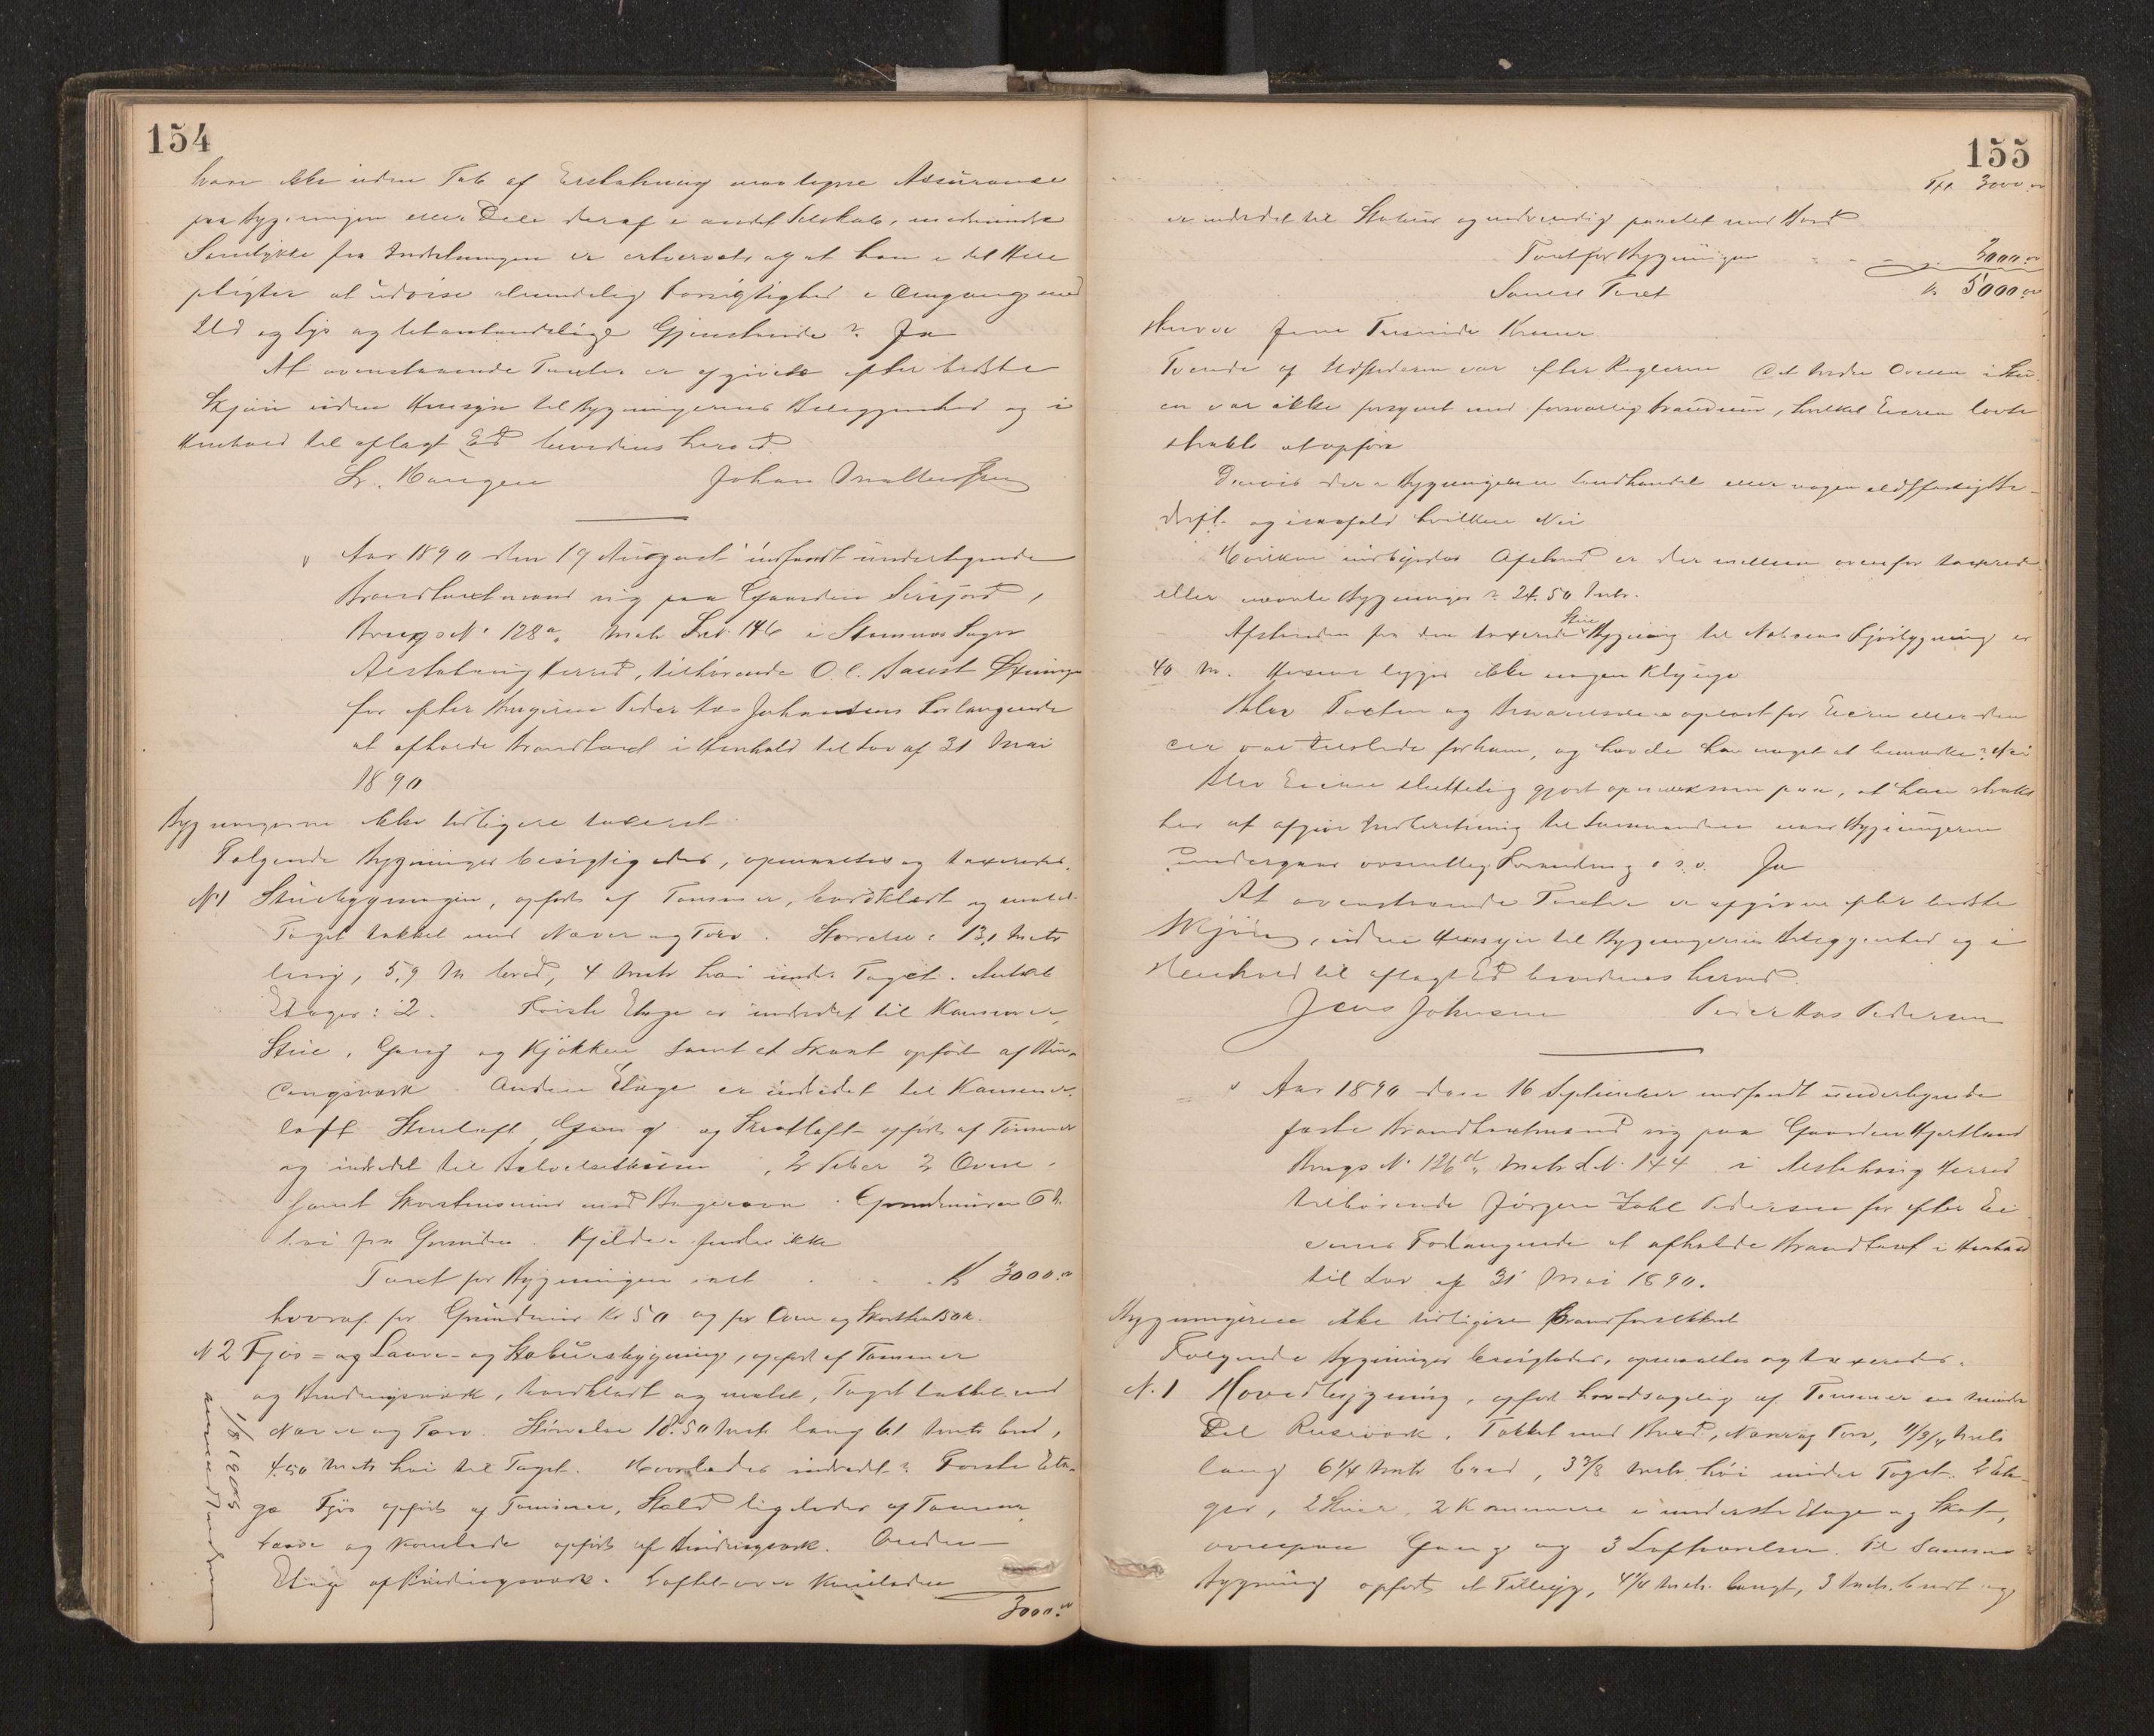 154
han ikke uden Tab af Erstatning maa tegne Assurance
paa Bygningen eller Dele deraf i andet Selskab, medmindre
Samtykke fra Indretningen er erhvervet og at han i det Hele
pligter at udvise almindelig Forsigtighed i Omgang med
Ild og Lys og letantændelige Gjenstande? Ja
At ovenstaaende Taxter er afgivet efter bedste
Skjøn uden Hensyn til Bygningernes Beliggenhed og i
Henhold til aflagt Ed bevidnes herved.
Johan
Aar 1890 den 19 August indfandt undertegnede
Brandtaxtmænd sig paa Gaarden
Brugs No 128a, Matr. Lnr. 146 i Stamnæs Sogn
Alstahaug Herred, tilhørende O. C.
for efter Brugeren Peder Aas Johansens Forlangende
at afholde Brandtaxt i Henhold til Lov af 31 Mai
1890
Bygningerne ikke tidligere taxeret
Følgende Bygninger besigtigedes, opmaaltes og taxeredes.
No 1 Stuebygningen, opført af Tømmer, bordklædt og malet
Taget tækket med Næver og Torv. Størrelse: 13,1 Metr
lang, 5,9 M bred, 4 Metr høi under Taget. Antal
Etager: 2. Første Etage er indredet til Kammer,
Stue, Gang og Kjøkken samt et Skant opført af Bin-
dingsværk. Anden Etage er indredet til Kammer-
loft Stueloft, Gang og opført af Tømmer
og indredet til, 2 Piber 2 Ovne
samt Skorstensmur med Bagerovn. Grundmuren
høi fra Grunden. Kjelder findes ikke
Taxt for Bygningen inkl . . . K 3000.00
hvoraf for Grundmur Kr 50 og for Ovne og
N 2 Fjøs- og Laave- og Stabursbygning, opført af Tømmer
og Bindingsværk, bordklædt og malet, Taget tækket med
Næver og Torv. Størrelse 18.50 Metr lang 6.1 Metr bred,
4.50 Metr høi til Taget. Hvorledes indredet? Første Eta-
ge Fjøs opført af Tømmer, Stald ligeledes af Tømmer,
Laave og Kornlade opført af Bindingsværk. Anden
Etage af Bindingsværk. Loftet over Kornladen
3000.00
1/8 1905
155
Tfr. 3000.00
er indredet til Stabur og udvendig panelet med Bord
Taxt for Bygningen - - - 2000.00
Samlet Taxt K 5000.00
skriver Fem Tusinde Kroner
Tvende af Ildstederne var efter Reglerne Det tredie Ovnen i Stu-
en var ikke forsynet med forsvarlig brandmur, hvilket Eieren lovte
straks at opføre
Drives der i Bygningerne Landhandel eller nogen ildsfarlig Be-
drift og isaafald hvilken Nei
Hvilken indbyrdes Afstand er der mellem ovenfor taxerede
eller nævnte Bygninger? 24.50 Metr.
Afstanden fra den taxerede Stue Bygning til Naboens Fjøsbygning er
40 M. Husene ligger ikke nogen Klynge
Blev Taxten og Besvarelserne oplæst for Eieren eller den
der var tilstede for ham, og havde han noget at bemærke? Nei
Blev Eieren skriftlig gjort opmærksom paa, at han straks
har at afgive Indberetning til Lensmanden naar Bygningerne
undergaar væsentlig Forandring o.s.v. Ja
At ovenstaaende Taxter er afgiven efter bedste
Skjøn, uden Hensyn til Bygningernes Beliggenhed og i
Henhold til aflagt Ed bevidnes herved.
Jens Johnsen Peder Aas Pedersen
Aar 1890 den 16 September indfandt undertegnede
faste Brandtaxtmænd sig paa Gaarden Hjertland
Brugs No 126d, Matr L.N. 144 i Alstahaug Herred
tilhørende Jørgen Zahl Pedersen for efter Ei-
erens Forlangende at afholde Brandtaxt i Henhold
til Lov af 31 Mai 1890.
Bygningerne ikke tidligere brandforsikret
Følgende Bygninger besigtedes, opmaaltes og taxeredes.
N. 1 Hovedbygning, opført hovedsagelig af Tømmer en mindre
Del Reisværk. Tækket med Bord, Næver og Torv, 11 3/4 Metr
lang 6 1/4 Metr bred, 3 3/8 Metr høi under Taget. 2 Eta-
ger, 2 Stuer, 2 Kammere i underste Etage og Skot,
ovenpaa Gang og 3 Loftværelser. Til samme
Bygning opført et Tilbyg, 4 1/4 Metr. langt, 3 Metr. bredt og